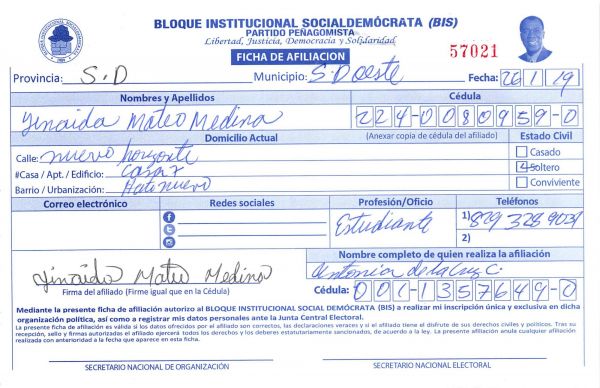 BLOQUE INSTITUCIONAL SOCIALDEMÓCRATA (BIS)
PARTIDO PEÑAGOMISTA
Libertad, Justicia, Democracia y Solidaridad
FICHA DE AFILIACION
57021
Provincia: S.D Municipio: S.D oeste Fecha: 26/1/19
Nombres y Apellidos Cédula
Yinaida Mateo Medina 224-0080959-0
Domicilio Actual (Anexar copia de cédula del afiliado) Estado Civil
Calle: nuevo horizonte Casado
#Casa / Apt. / Edificio: Casa 7 Soltero
Barrio / Urbanización: Hato nuevo Conviviente
Correo electrónico Redes sociales Profesión/Oficio Teléfonos
Estudiante 1) 829 328 9034
2)
Nombre completo de quien realiza la afiliación
Yinaida Mateo Medina Antonia de la Cruz C.
Firma del afiliado (Firme igual que en la Cédula) Cédula: 001-1357649-0
Mediante la presente ficha de afiliación autorizo al BLOQUE INSTITUCIONAL SOCIAL DEMÓCRATA (BIS) a realizar mi inscripción única y exclusiva en dicha
organización política, así como a registrar mis datos personales ante la Junta Central Electoral.
La presente ficha de afiliación es válida si los datos ofrecidos por el afiliado son correctos, las declaraciones veraces y si el afiliado tiene el disfrute de sus derechos civiles y políticos. Tras su
recepción, sello y firmas autorizadas el afiliado ejercerá todos los derechos y los deberes estatutariamente sancionados, de acuerdo a la ley. La presente afiliación anula cualquier afiliación
realizada con anterioridad a la fecha que aparece en esta ficha.
SECRETARIO NACIONAL DE ORGANIZACIÓN SECRETARIO NACIONAL ELECTORAL